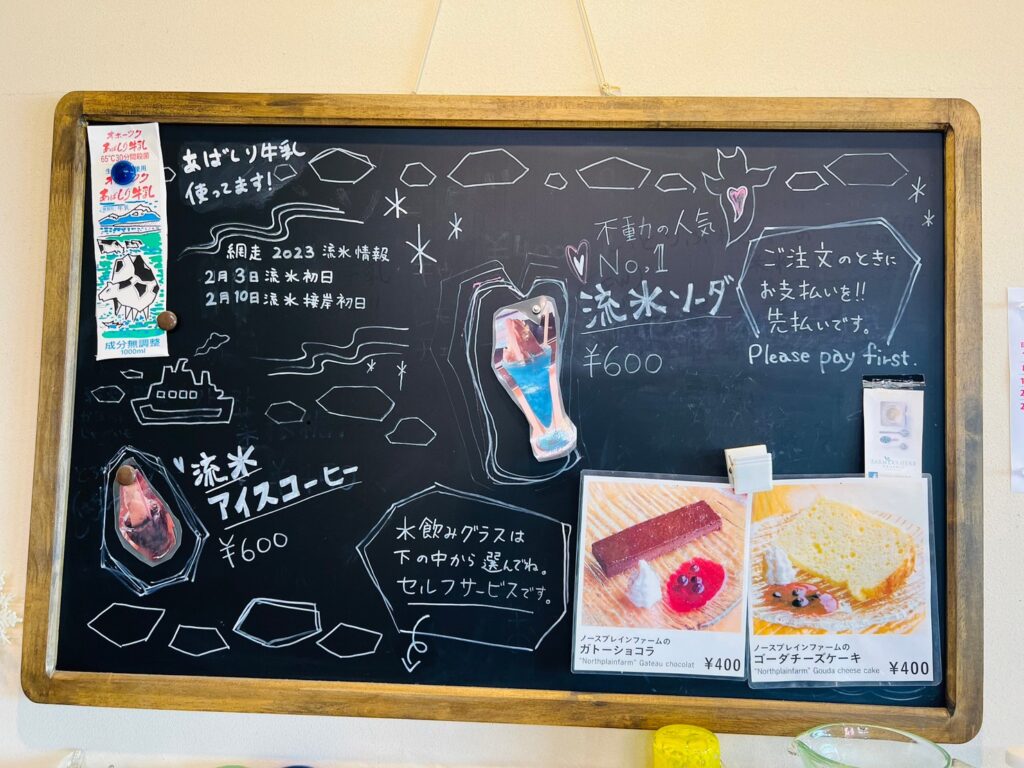 オホーツク
あばしり牛乳
65℃30分間殺菌
あばしり牛乳
成分無調整
1000ml
あばしり牛乳
使ってます!
網走 2023 流氷情報
2月3日流氷初日
2月10日流氷接岸初日
不動の人気
No.1
流氷ソーダ
¥600
ご注文のときに
お支払いを!!
先払いです。
Please pay first.
流氷
アイスコーヒー
¥600
水飲みグラスは
下の中から選んでね。
セルフサービスです。
ノースプレインファームの
ガトーショコラ
"Northplainfarm" Gateau chocolat ¥400
ノースプレインファームの
ゴーダチーズケーキ
"Northplainfarm" Gouda cheese cake ¥400